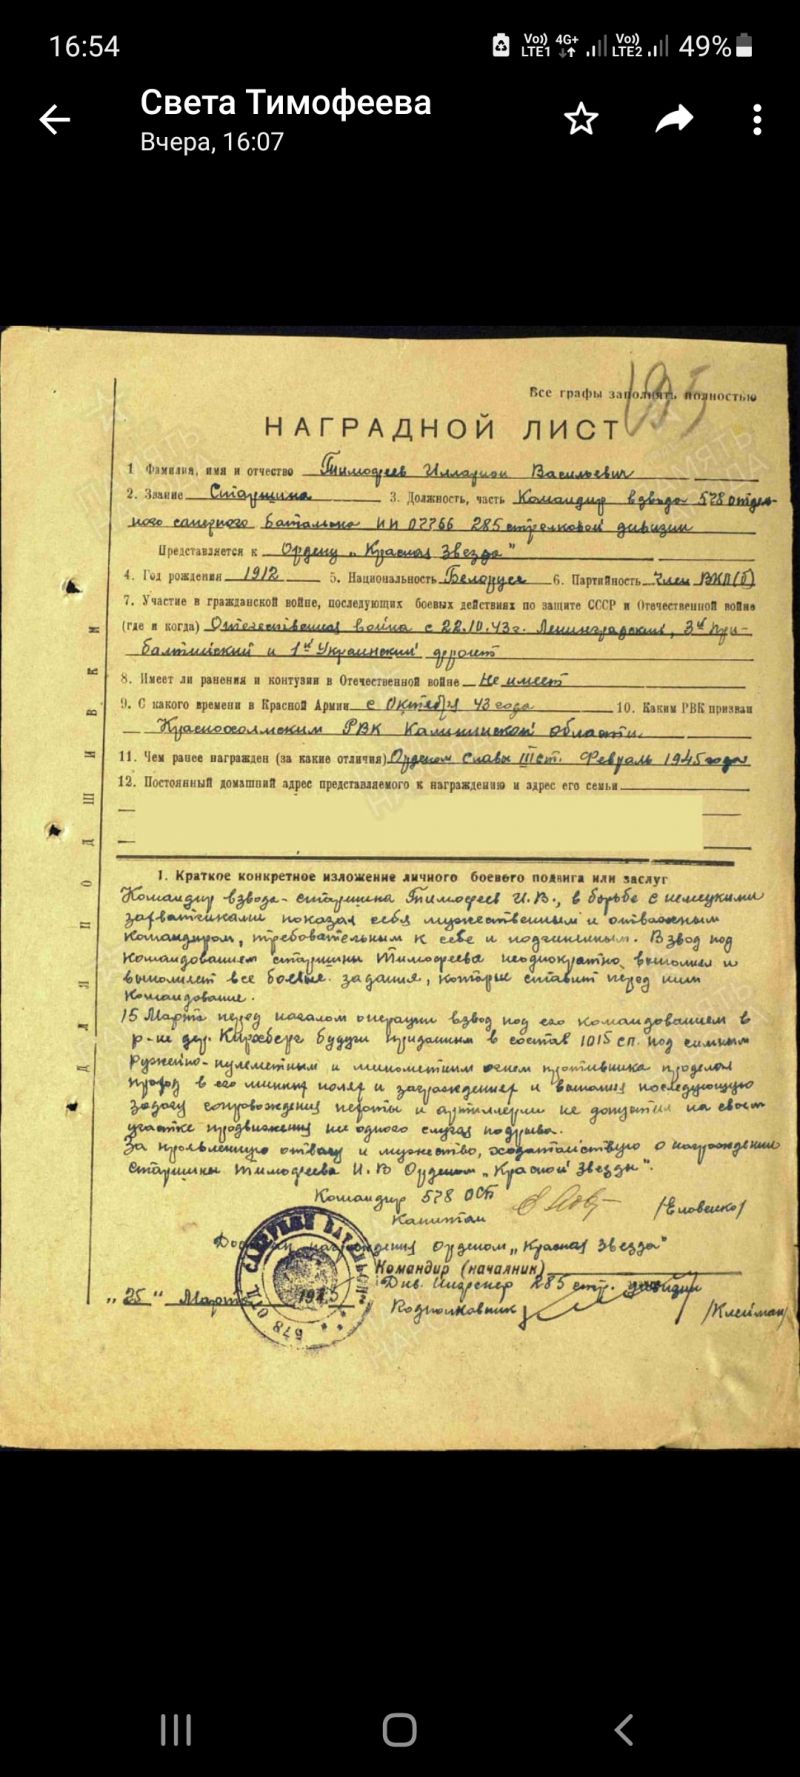 16:54
Vo)) LTE1 4G+ Vo)) LTE2 49%
Света Тимофеева
Вчера, 16:07
195
Все графы заполнять полностью
НАГРАДНОЙ ЛИСТ
1 Фамилия, имя и отчество Тимофеев Илларион Васильевич
2. Звание Старшина 3. Должность, часть Командир взвода 578 отдель-
ного саперного батальона ПП 07766 285 стрелковой дивизии
Представляется к Ордену „Красная Звезда"
4. Год рождения 1912 5. Национальность Белорусс 6. Партийность Член ВКП(б)
7. Участие в гражданской войне, последующих боевых действиях по защите СССР и Отечественной войне
(где и когда) Отечественная война с 22.10.43 г. Ленинградский, 3й При-
балтийский и 1й Украинский фронт
8. Имеет ли ранения и контузии в Отечественной войне Не имеет
9. С какого времени в Красной Армии с Октября 43 года 10. Каким РВК призван
Краснохолмским РВК Калининской области
11. Чем ранее награжден (за какие отличия) Орденом Славы III ст. Февраль 1945 года
12. Постоянный домашний адрес представляемого к награждению и адрес его семьи
ДЛЯ ПОДШИВКИ
I. Краткое конкретное изложение личного боевого подвига или заслуг
Командир взвода - старшина Тимофеев И.В., в борьбе с немецкими
захватчиками показал себя мужественным и отважным
командиром, требовательным к себе и подчиненным. Взвод под
командованием старшины Тимофеева неоднократно выполнял и
выполняет все боевые задания, которые ставит перед ним
командование.
15 Марта перед началом операции взвод под его командованием в
р-не дер. Кирхберг будучи приданным в состав 1015 сп. под сильным
ружейно-пулеметным и минометным огнем противника проделал
проход в его минных полях и заграждениях и выполняя последующую
задачу сопровождения пехоты и артиллерии не допустил на своем
участке продвижения ни одного случая подрыва.
За проявленную отвагу и мужество, ходатайствую о награждении
старшины Тимофеева И.В Орденом „Красной Звезды".
Командир 578 ОСБ
Капитан /Еловенко/
Достоин награждения орденом „Красная Звезда"
Командир (начальник)
Див. Инженер 285 стр. дивизии
„25" Марта 1945
Подполковник /Клейман/
578 ОТД. САПЕРНЫЙ БАТАЛЬОН